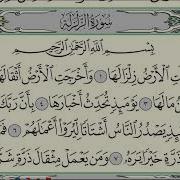 سُورَةُ الزَّلْزَلَةِ
بِسْمِ ٱللَّهِ ٱلرَّحْمَٰنِ ٱلرَّحِيمِ
ٱلْأَرْضُ زِلْزَالَهَا ١ وَأَخْرَجَتِ ٱلْأَرْضُ أَثْقَالَهَا
مَا لَهَا ٣ يَوْمَئِذٍ تُحَدِّثُ أَخْبَارَهَا ٤ بِأَنَّ رَبَّكَ
يَصْدُرُ ٱلنَّاسُ أَشْتَاتًا لِّيُرَوْا۟ أَعْمَٰلَهُمْ ٦
ذَرَّةٍ خَيْرًا يَرَهُۥ ٧ وَمَن يَعْمَلْ مِثْقَالَ ذَرَّةٍ